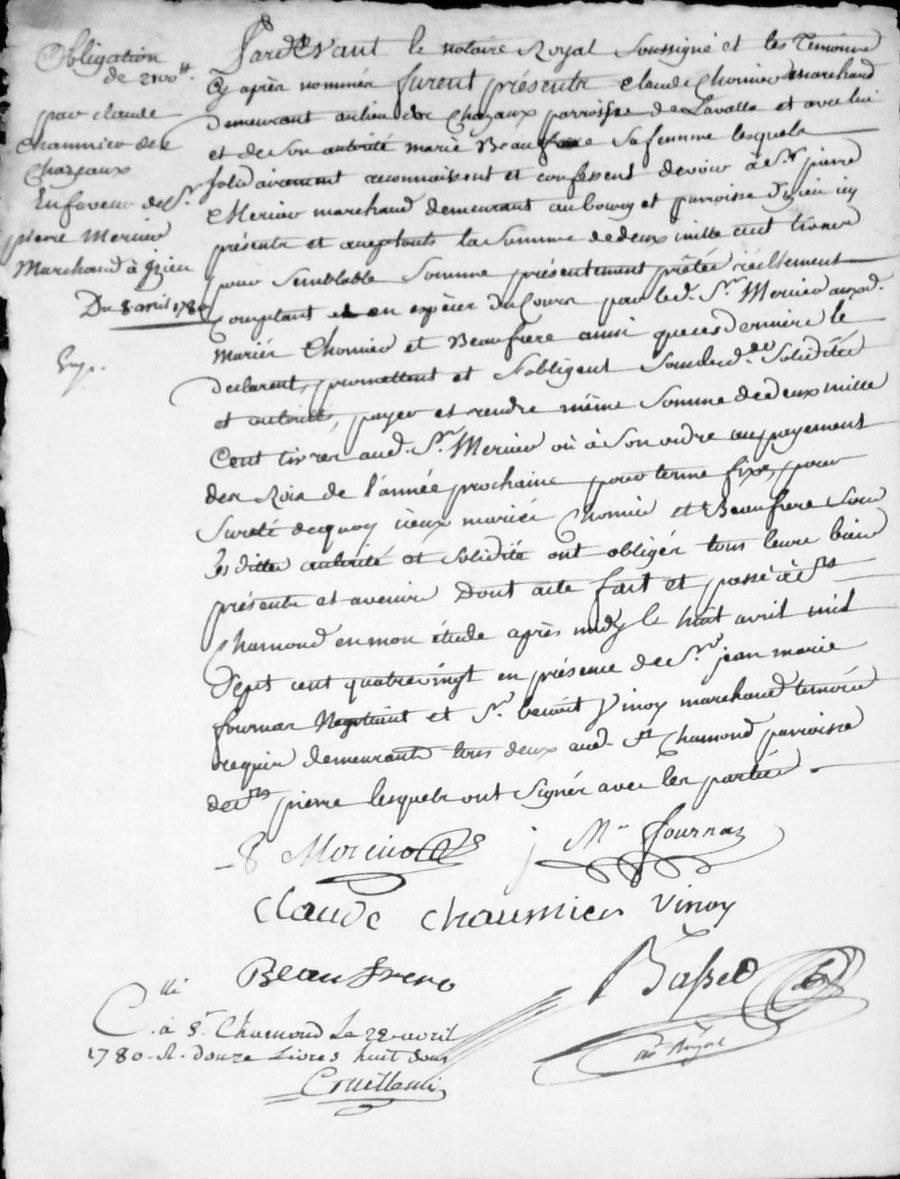 Obligation
de 2100 ll.
par claude
Chaumier de
Chazeaux
En faveur de Sr.
pierre Mercier
Marchand à Izieu
Du 8 avril 1780
Exp.
Pardevant le notaire Royal Soussigné et les Temoins
Cy après nommés furent présents Claude Chomier Marchand
demeurant au lieu de Chazaux parroisse de Lavalla et avec lui
et de Son autorité marie Beaufrere Sa femme lesquels
Solidairement reconnaissent et confessent devoir à Sr. pierre
Mercier marchand demeurant au bourg et parroisse d'Izieu icy
présent et acceptant la Somme de deux mille cent livres
pour Semblable Somme présentement prêtée réellement
comptant et en espèces du Cours par led. Sr. Mercier auxd.
mariés Chomier et Beaufrere ainsi que ces derniers le
declarent, promettent et S'obligent Sous lesd. Solidité
et autorité, payer et rendre même Somme de deux mille
Cent livres aud. Sr. Mercier où à Son ordre au payement
des Rois de l'année prochaine pour terme fixe, pour
Sureté de quoy iceux mariés Chomier et Beaufrere Sous
lesdittes autorité et Solidité ont obligés tous leurs biens
présents et avenirs Dont acte fait et passé à St
Chamond en mon étude après midy le huit avril mil
Sept cent quatrevingt en présence de Sr. jean marie
fournas Negotiant et Sr. benoit Vinoy marchand temoins
requis demeurants tous deux aud. St Chamond parroisse
de St pierre lesquels ont Signés avec les parties.
P Mercier j Mie fournas
Claude Chaumier Vinoy
Beaufrere Basset
nore Royal
Clle
à St. Chamond Le 22 avril
1780 R. douze Livres huit Sous